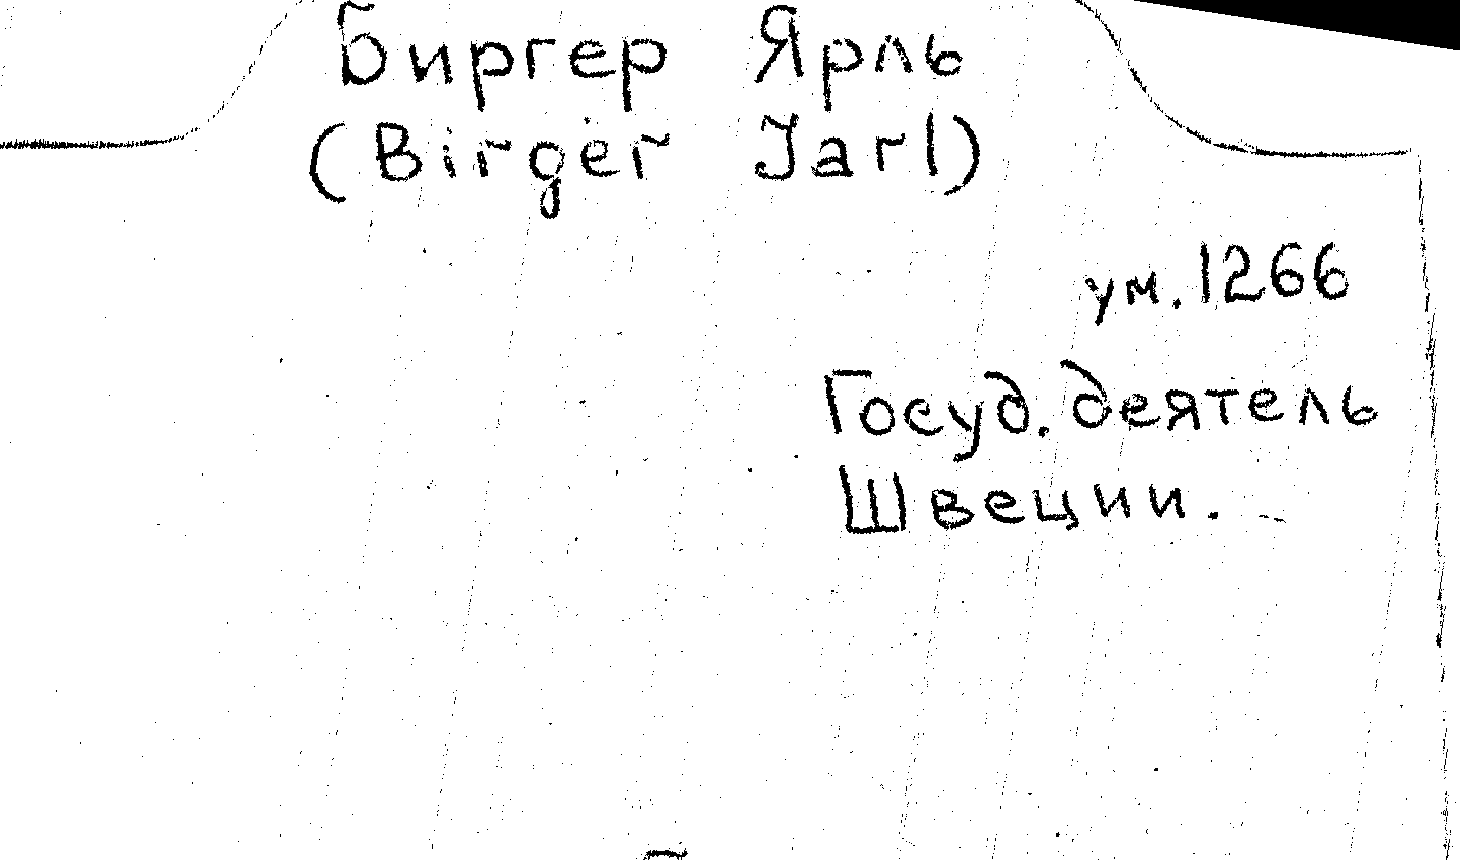 Биргер Ярль
(Birger Jarl)
ум. 1266
Госуд. деятель
Швеции.